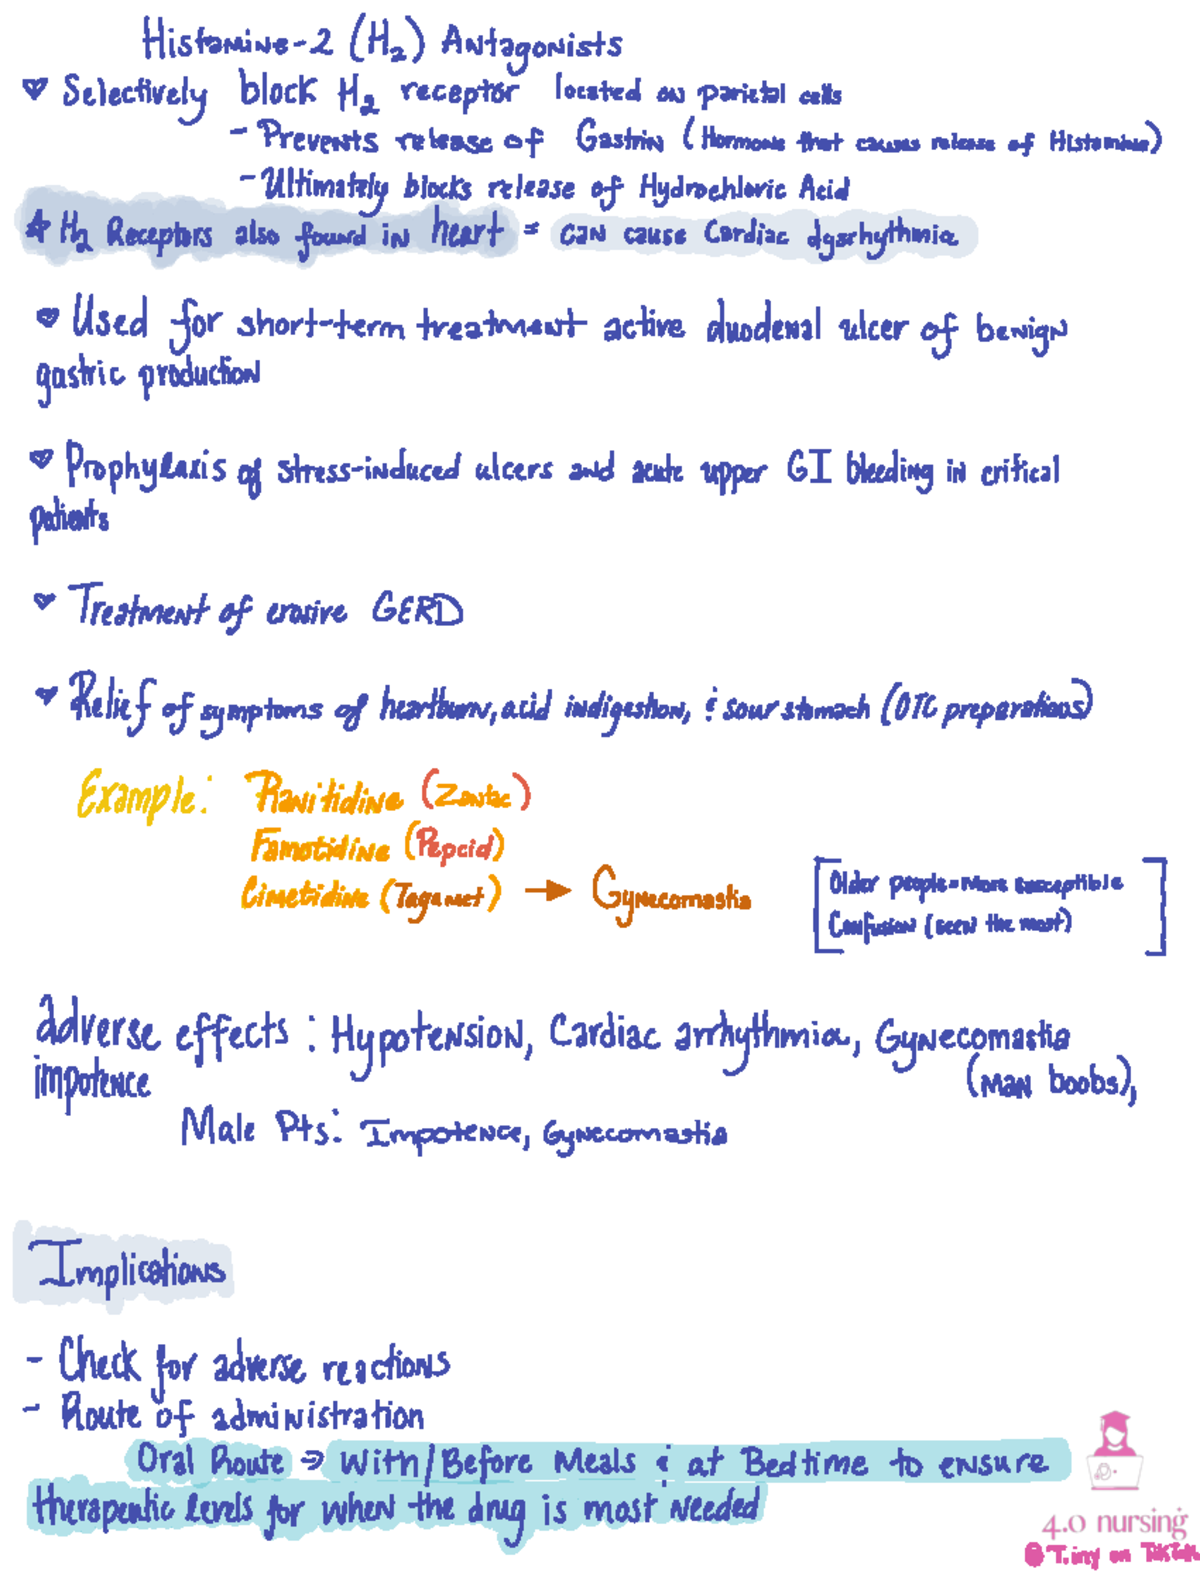 Histamine-2 (H2) Antagonists
Selectively block H2 receptor located on parietal cells
- Prevents release of Gastrin (Hormone that causes release of Histamine)
- Ultimately blocks release of Hydrochloric Acid
H2 Receptors also found in heart = can cause Cardiac dysrhythmia
Used for short-term treatment active duodenal ulcer of benign
gastric production
Prophylaxis of stress-induced ulcers and acute upper GI bleeding in critical
patients
Treatment of erosive GERD
Relief of symptoms of heartburn, acid indigestion, & sour stomach (OTC preparations)
Example: Ranitidine (Zantac)
Famotidine (Pepcid)
Cimetidine (Tagamet) → Gynecomastia
[Older people = more susceptible
Confusion (seen the most)]
adverse effects : Hypotension, Cardiac arrhythmia, Gynecomastia
(man boobs),
impotence
Male Pts: Impotence, Gynecomastia
Implications
- Check for adverse reactions
- Route of administration
Oral Route → With/Before Meals & at Bedtime to ensure
therapeutic levels for when the drug is most needed
4.0 nursing
T.iny on TikTok